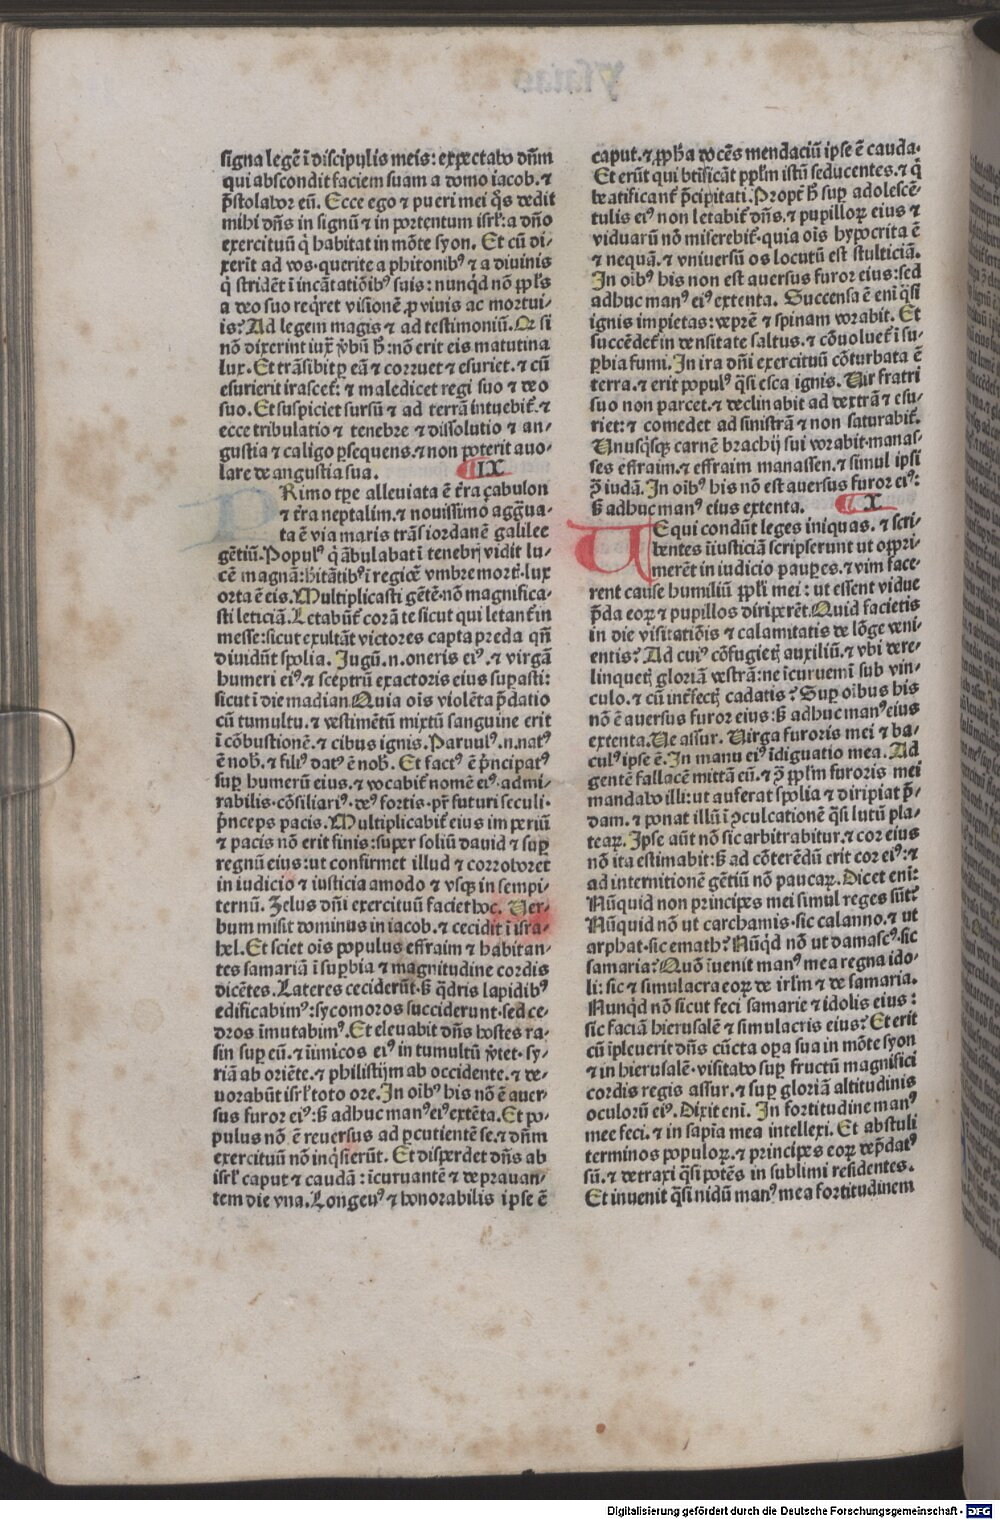 signa legē ī discipulis meis: expectabo dn̄m
qui abscondit faciem suam a domo iacob. ⁊
p̄stolabor eū. Ecce ego ⁊ pueri mei q̄s dedit
mihi dn̄s in signū ⁊ in portentum isrł: a dn̄o
exercituū q̇ habitat in mōte syon. Et cū di-
xerīt ad vos·querite a phitonibꝰ ⁊ a diuinis
q̇ stridēt ī incātatiōibꝰ suis: nunqd nō ppłs
a deo suo reqret visionē ꝓ viuis ac mortui-
is? Ad legem magis ⁊ ad testimoniū. Qr si
nō dixerint iux̄ ꝟbū h̄: nō erit eis matutina
lux. Et trāsibit ꝑ eā ⁊ corruet ⁊ esuriet. ⁊ cū
esurierit irascet̄: ⁊ maledicet regi suo ⁊ deo
suo. Et suspiciet sursū ⁊ ad terrā intuebit̄. ⁊
ecce tribulatio ⁊ tenebre ⁊ dissolutio ⁊ an-
gustia ⁊ caligo ꝑsequens. ⁊ non poterit auo-
lare de angustia sua. IX
PRimo tꝑe alleuiata ē t̄ra çabulon
⁊ t̄ra neptalim. ⁊ nouissimo aggua-
ta ē via maris trās iordanē galilee
gētiū. Populꝰ q̇ ābulabat ī tenebr̄ vidit lu-
cē magnā: hītātibꝰ ī regiōe vmbre mort̄·lux
orta ē eis. Multiplicasti gētē·nō magnifica-
sti leticiā. Letabūt̄ corā te sicut qui letant̄ in
messe: sicut exultāt victores capta preda qn̄
diuidūt spolia. Jugū .n. oneris eiꝰ. ⁊ virgā
humeri eiꝰ. ⁊ sceptrū exactoris eius supasti:
sicut ī die madian. Quia oīs violēta p̄datio
cū tumultu. ⁊ vestimētū mixtū sanguine erit
ī cōbustionē. ⁊ cibus ignis. Paruulꝰ .n. natꝰ
ē nob̄. ⁊ filiꝰ datꝰ ē nob̄. Et factꝰ ē p̄ncipatꝰ
suꝑ humerū eius. ⁊ vocabit̄ nomē eiꝰ·admi-
rabilis·cōsiliariꝰ·deꝰ fortis·pr̄ futuri seculi·
p̄nceps pacis. Multiplicabit̄ eius imperiū
⁊ pacis nō erit finis: super soliū dauid ⁊ suꝑ
regnū eius: ut confirmet illud ⁊ corroboret
in iudicio ⁊ iusticia amodo ⁊ vsqꝫ in sempi-
ternū. Zelus dn̄i exercituū faciet hoc. Ver-
bum misit dominus in iacob. ⁊ cecidit ī isra-
hel. Et sciet oīs populus effraim ⁊ habitan-
tes samariā ī suꝑbia ⁊ magnitudine cordis
dicētes. Lateres ceciderūt·ß q̄dris lapidibꝰ
edificabimꝰ: sycomoros succiderunt·sed ce-
dros īmutabimꝰ. Et eleuabit dn̄s hostes ra-
sin suꝑ eū. ⁊ īimicos eiꝰ in tumultū ꝟtet·sy-
riā ab oriēte. ⁊ philistijm ab occidente. ⁊ de-
uorabūt isrł toto ore. In oībꝰ his nō ē auer-
sus furor eiꝰ: ß adhuc manꝰ eiꝰ extēta. Et po-
pulus nō ē reuersus ad ꝑcutientē se. ⁊ dn̄m
exercituū nō inqsierūt. Et disperdet dn̄s ab
isrł caput ⁊ caudā: īcuruantē ⁊ deprauan-
tem die vna. Longeuꝰ ⁊ honorabilis ipse ē
caput. ⁊ ꝓph̄a docēs mendaciū ipse ē cauda.
Et erūt qui btīficāt ppłm istū seducentes. ⁊ q̇
beatificant̄ p̄cipitati. Propt̄ h̄ suꝑ adolescē-
tulis eiꝰ non letabit̄ dn̄s. ⁊ pupilloꝝ eius ⁊
viduarū nō miserebit̄·quia oīs hypocrita ē
⁊ nequā. ⁊ vniuersū os locutū est stulticiā.
In oībꝰ his non est auersus furor eius: sed
adhuc manꝰ eiꝰ extenta. Succensa ē eni q̄si
ignis impietas: veprē ⁊ spinam vorabit. Et
succēdet̄ in dēsitate saltus. ⁊ cōuoluet̄ ī su-
ꝑbia fumi. In ira dn̄i exercituū cōturbata ē
terra. ⁊ erit populꝰ q̄si esca ignis. Vir fratri
suo non parcet. ⁊ declinabit ad dextrā ⁊ esu-
riet: ⁊ comedet ad sinistrā ⁊ non saturabit̄.
Vnusqsqꝫ carnē brachij sui vorabit·manas-
ses effraim. ⁊ effraim manassen. ⁊ simul ipsi
ꝯ̄ iudā. In oībꝰ his nō est auersus furor eiꝰ:
ß adhuc manꝰ eius extenta. X
VE qui condūt leges iniquas. ⁊ scri-
bentes īiusticiā scripserunt ut oppri-
merēt in iudicio pauꝑes. ⁊ vim face-
rent cause humiliū ppłi mei: ut essent vidue
p̄da eoꝝ ⁊ pupillos diriperēt. Quid facietis
in die visitatiōis ⁊ calamitatis de lōge veni-
entis? Ad cuiꝰ cōfugietꝭ auxiliū. ⁊ vbi dere-
linquetꝭ gloriā vestrā: ne īcuruemī sub vin-
culo. ⁊ cū int̄fectꝭ cadatis? Suꝑ oībus his
nō ē auersus furor eius: ß adhuc manꝰ eius
extenta. Ve assur. Virga furoris mei ⁊ ba-
culꝰ ipse ē. In manu eiꝰ īdiguatio mea. Ad
gentē fallacē mittā eū. ⁊ ꝯ̄ ppłm furoris mei
mandabo illi: ut auferat spolia ⁊ diripiat p̄-
dam. ⁊ ponat illū ī ꝯculcationē q̄si lutū pla-
teaꝝ. Ipse aūt nō sic arbitrabitur. ⁊ cor eius
nō ita estimabit: ß ad cōterēdū erit cor eiꝰ: ⁊
ad internitionē gētiū nō paucaꝝ. Dicet eni:
Nūquid non principes mei simul reges sūt?
Nūquid nō ut carchamis·sic calanno. ⁊ ut
arphat·sic emath? Nūqd nō ut damascꝰ·sic
samaria? Quō īuenit manꝰ mea regna ido-
li: sic ⁊ simulacra eoꝝ de irłm ⁊ de samaria.
Nunqd nō sicut feci samarie ⁊ idolis eius:
sic faciā hierusalē ⁊ simulacris eius? Et erit
cū īpleuerit dn̄s cūcta oꝑa sua in mōte syon
⁊ in hierusalē·visitabo suꝑ fructū magnifici
cordis regis assur. ⁊ suꝑ gloriā altitudinis
oculorū eiꝰ. Dixit eni. In fortitudine manꝰ
mee feci. ⁊ in sapīa mea intellexi. Et abstuli
terminos populoꝝ. ⁊ principes eoꝝ dep̄datꝰ
sū. ⁊ detraxi q̄si potēs in sublimi residentes.
Et inuenit q̄si nidū manꝰ mea fortitudinem
Digitalisierung gefördert durch die Deutsche Forschungsgemeinschaft - DFG